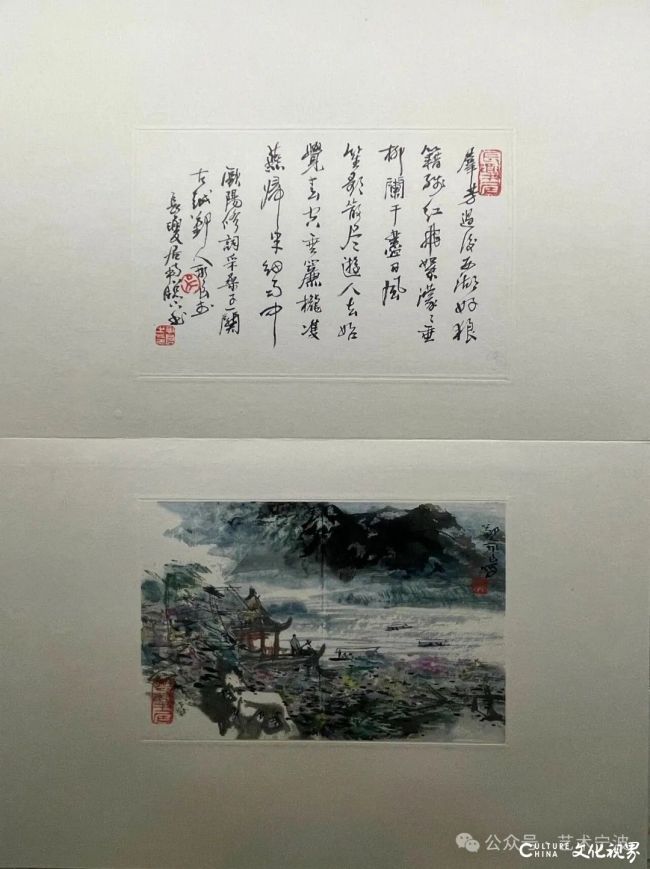 羣芳過後西湖好狼
籍殘紅飛絮濛々垂
柳闌干盡日風
笙歌散盡遊人去始
覺春空垂簾櫳雙
燕歸来細雨中
歐陽修詞采桑子一闋
公众号 · 艺术宁波
CULTURE CHINA 文化视界